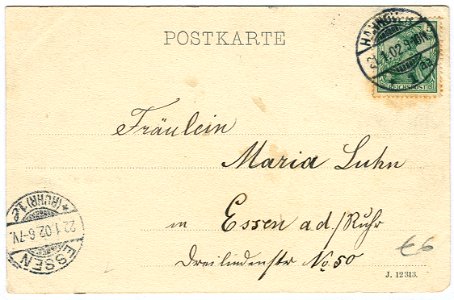 POSTKARTE
HANNOVER
21.1.02.9-10N.
REICHSPOST
Fräulein
Maria Luhn
in Essen a.d./Ruhr
Dreilindenstr No. 50
ESSEN
*(RUHR)1e
22.1.02.6-7V.
€6
J. 12313.